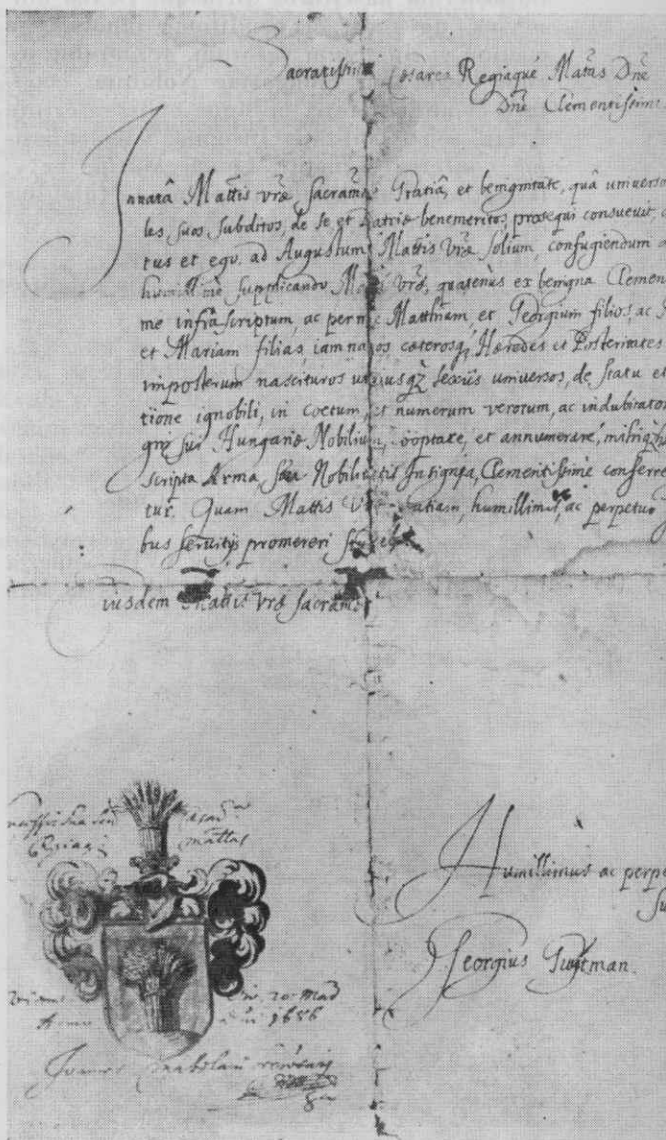 Sacratissima Cæsarea Regiaque Mattas Dne
Dne Clementissime
Innatâ Mattis vræ Sacramæ Gratiâ, et benignitate, quâ universo
les, suos, subditos, de se, et Patriæ benemeritos, prosequi consuevit,
tus et ego, ad Augustum Mattis Vræ solium, confugiendum
humillime supplicando Matti Vræ, quatenùs ex benigna Clemen
me infrascriptum, ac per me Matthiam, et Georgium filios, ac
et Mariam filias, iam natos, cæterosq; Hæredes et Posteritates
imposterum nascituros utriusq; sexûs universos, de statu et
tione ignobili, in coetum, et numerum verorum, ac indubitator
gni sui Hungariæ Nobilium, cooptare, et annumerare, mihiq;
scripta Arma, seu Nobilitatis Insignia, Clementissime conferre
tur. Quam Mattis Vræ Gratiam, humillimis, ac perpetuo
bus servitijs promereri
Eiusdem Mattis Vræ Sacramæ
mattas
Humillimus ac perpe
Su
Georgius
20
Anno 1656
Joannes